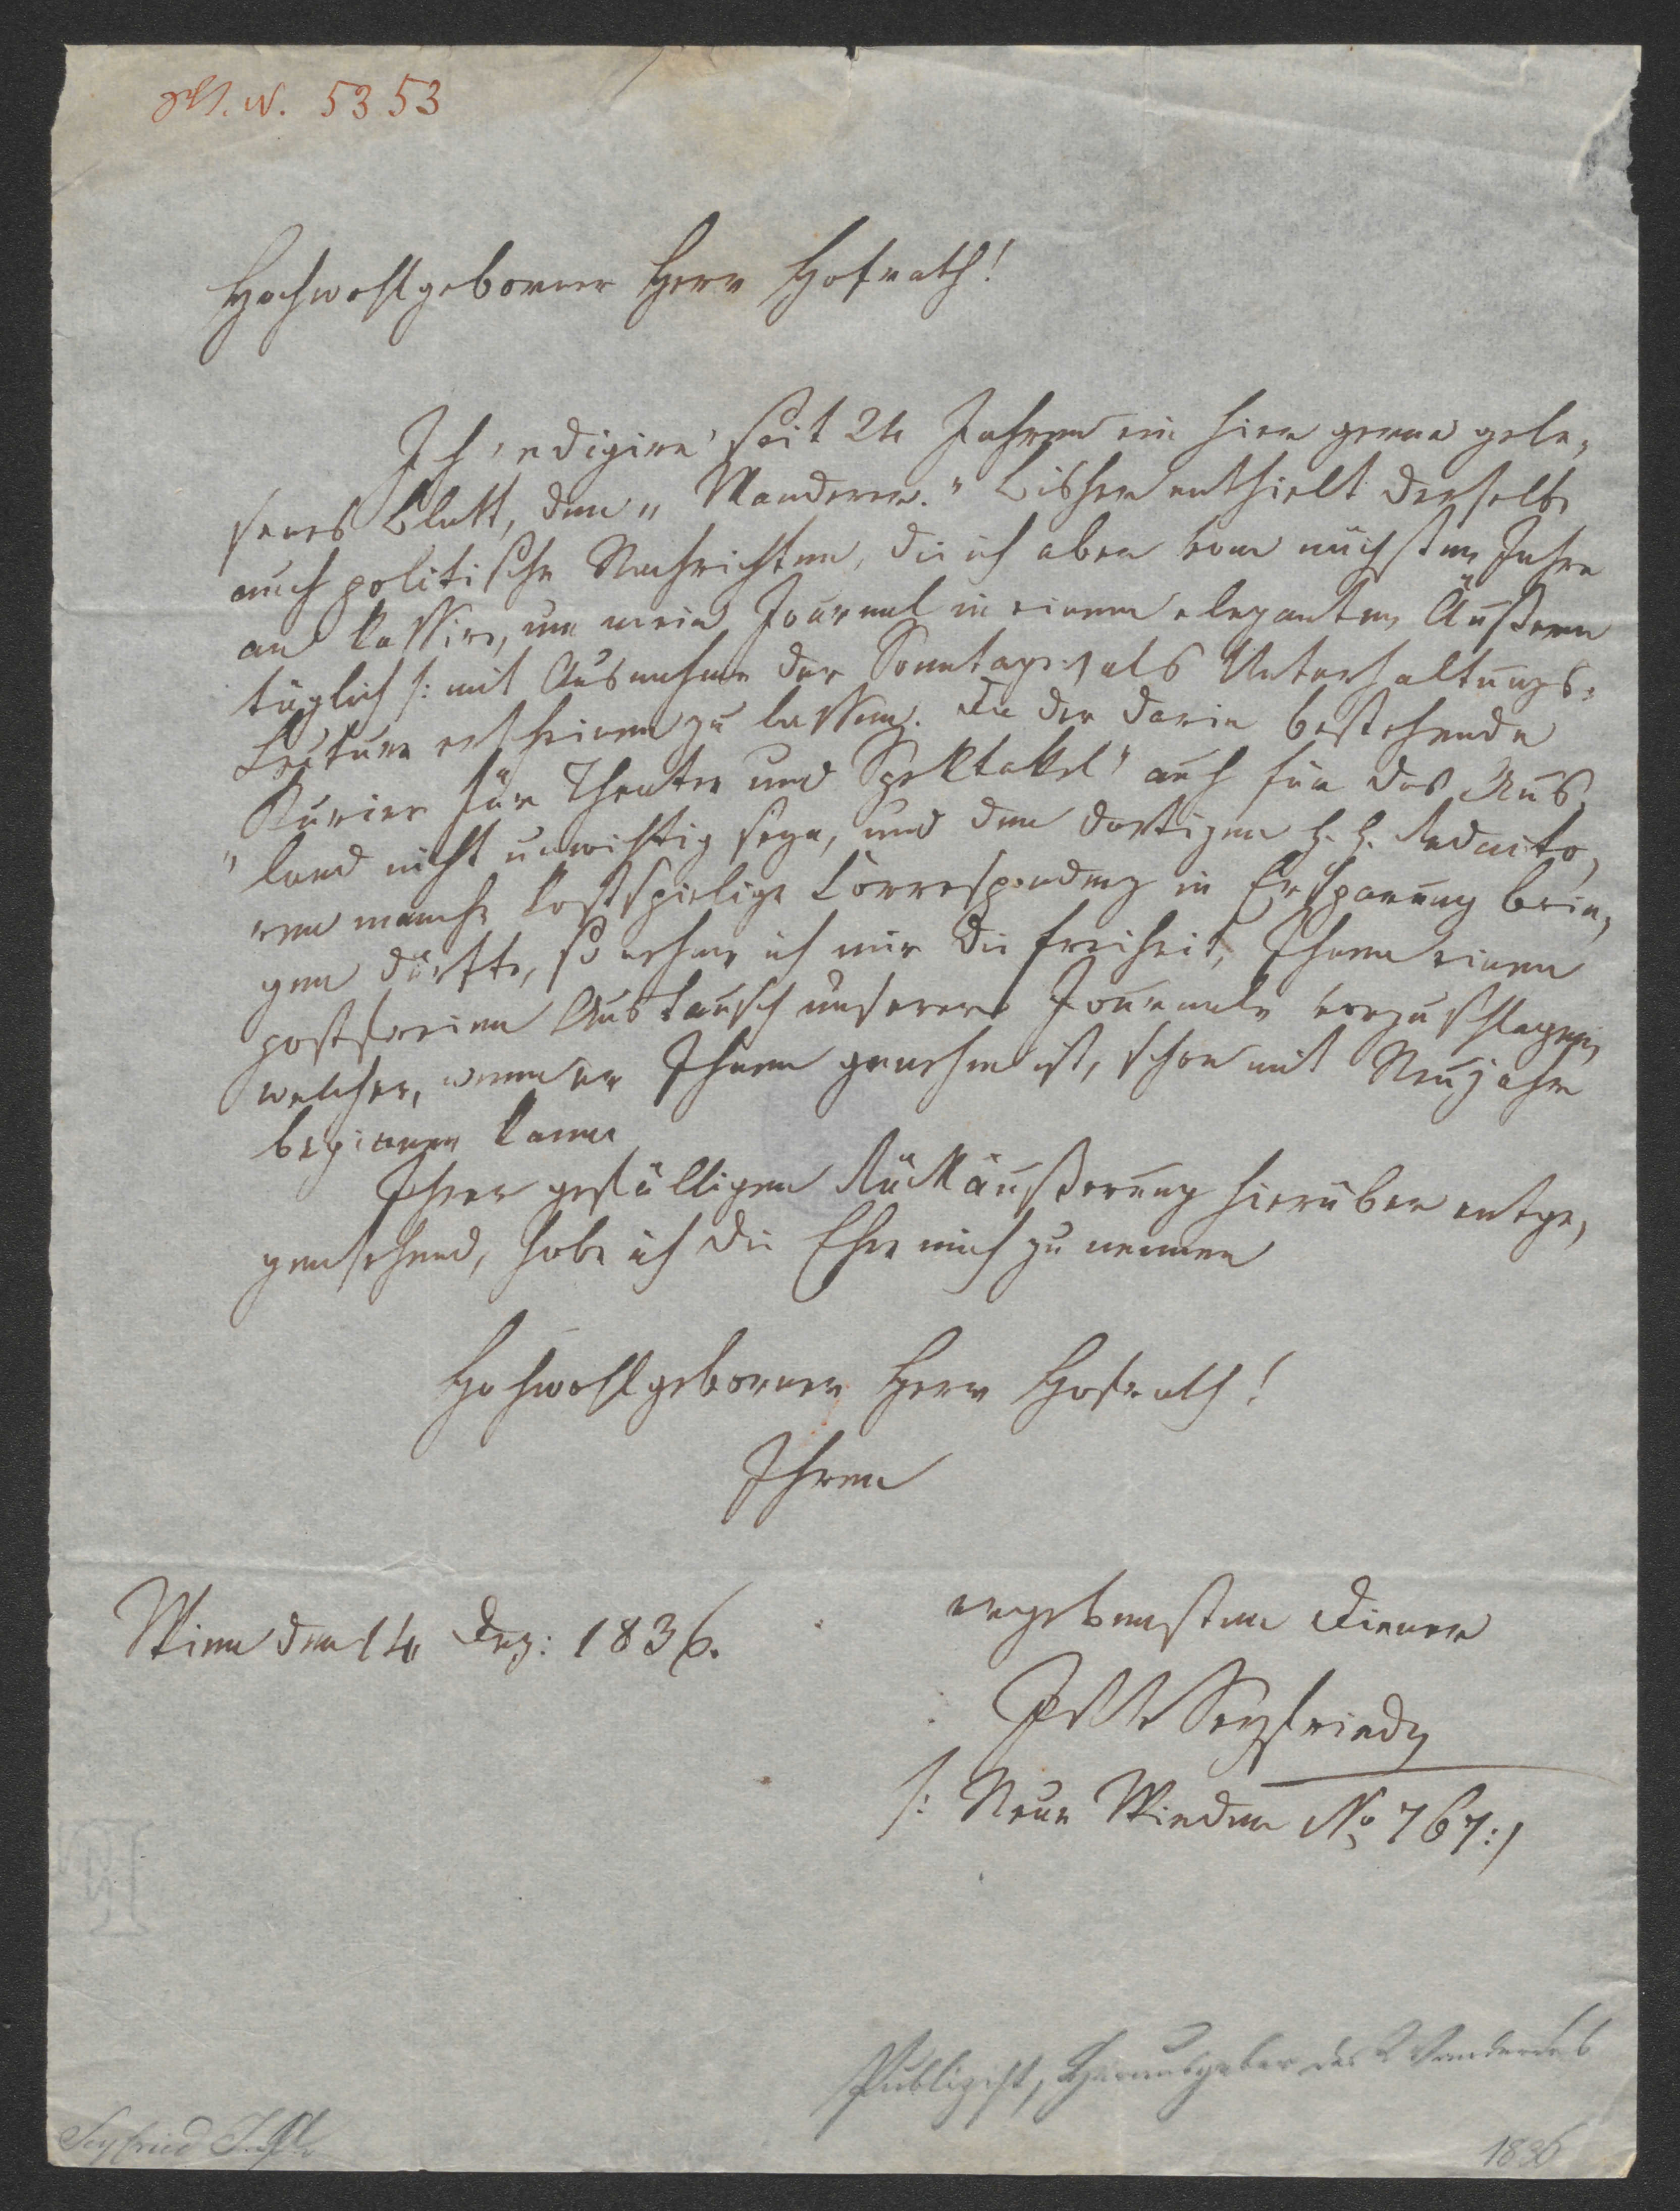 N. 5353
Hochwohlgeborner Herr Hofrath!
Ich redigire seit 24 Jahren ein hier gerne gele-
senes Blatt, den „Wanderer." Bisher enthielt derselbe
auch politische Nachrichten, die ich aber vom nächsten Jahre
an kassire, um mein Journal in einem eleganten Äußern
täglich /: mit Ausnahme der Sonntage :/ als Unterhaltungs-
Lecture erscheinen zu lassen. Da der darin bestehende
„Kurier für Theater und Spektakel" auch für das Aus-
land nicht unwichtig seyn, und den dortigen H. H. Redacto-
ren manche kostspielige Correspondenz in Ersparung brin-
gen dürfte, so nehme ich mir die Freiheit, Ihnen einen
postfreien Austausch unserer Journale vorzuschlagen,
welcher, wenn er Ihnen genehm ist, schon mit Neujahr
beginnen kann
Ihrer gefälligen Rückäußerung hierüber entge-
gensehend, habe ich die Ehre mich zu nennen
Hochwohlgeborner Herr Hofrath!
Ihren
ergebensten Diener
Wien den 14 Dez: 1836.
Seyfried
/: Neue Wieden No 767 :/
Publizist, Herausgeber des Wanderers
Seyfried
1836